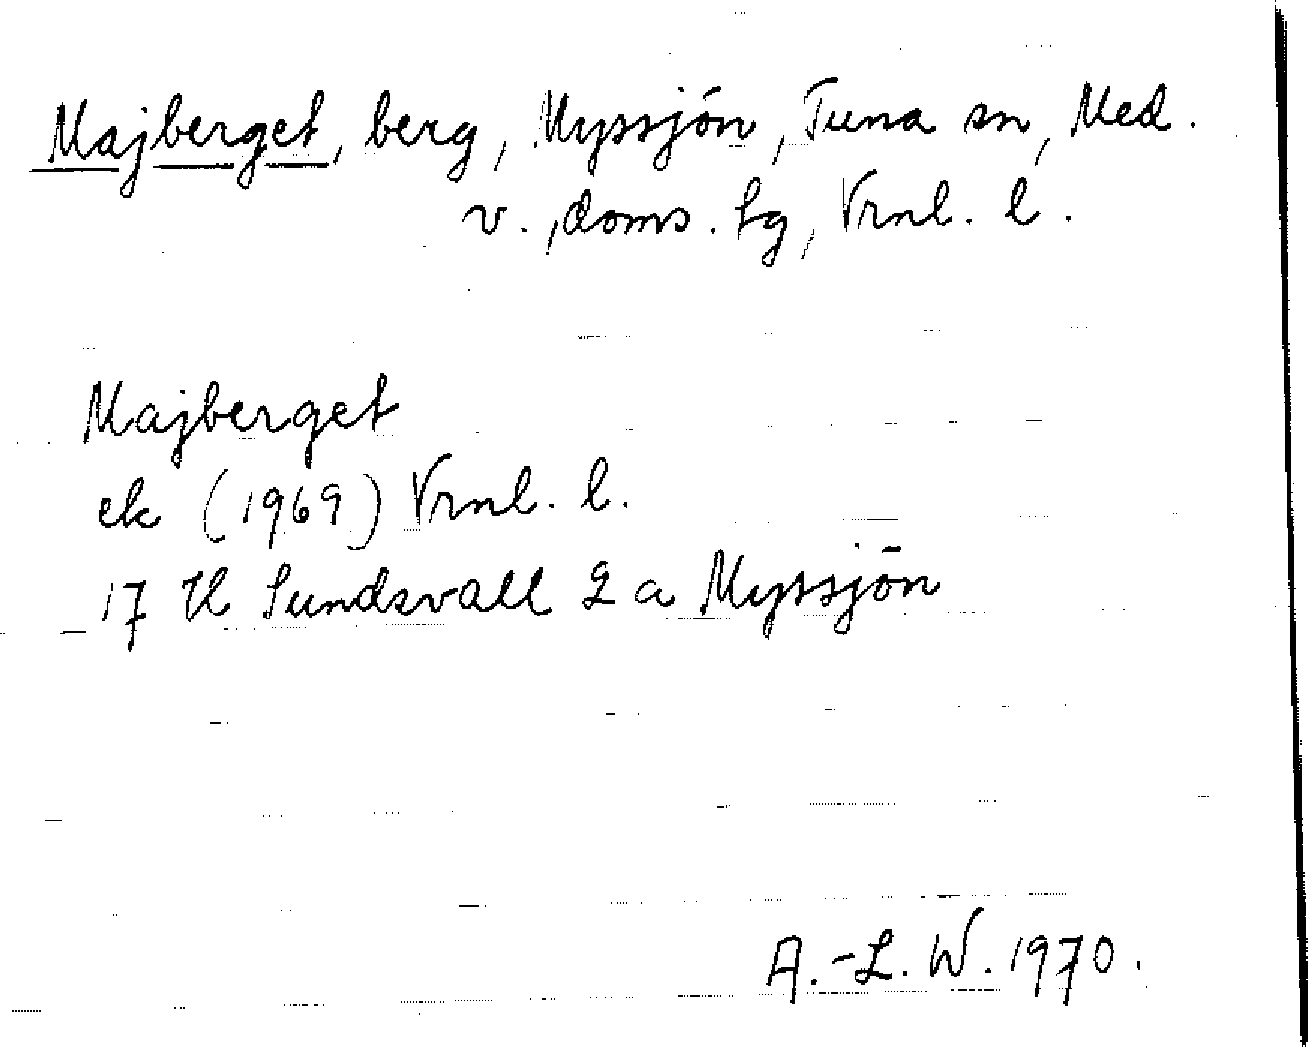 Majberget, berg, Myssjön, Tuna sn, Med.
v., doms. sg, Vrnl. l.
Majberget
ek (1969) Vrnl. l.
17 H Sundsvall 2 a Myssjön
A.-L. W. 1970.